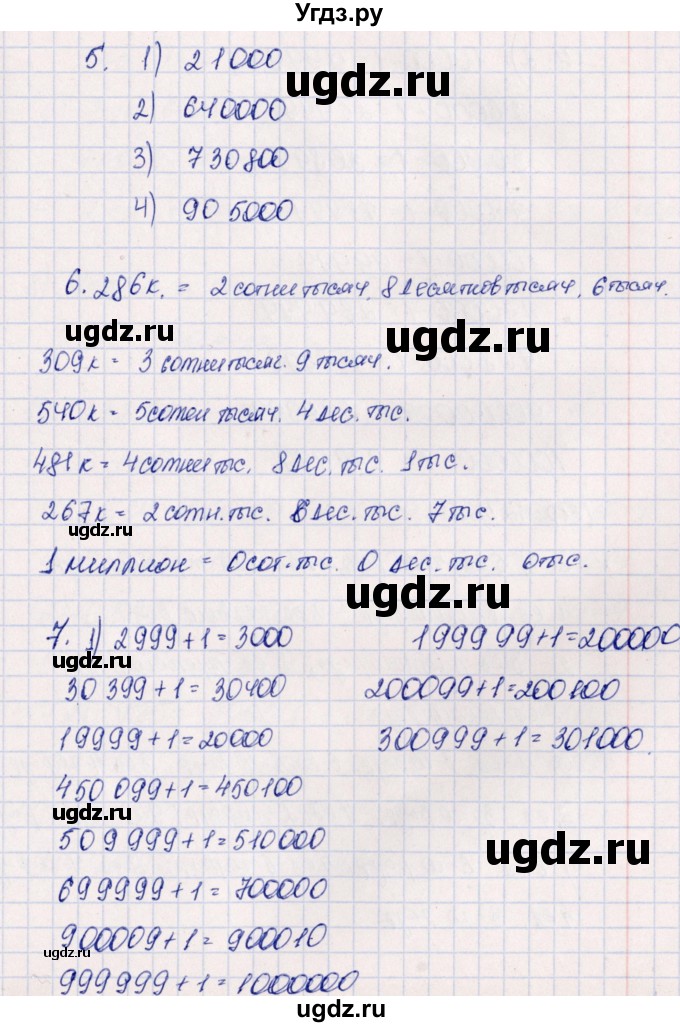 Угдз.ру
5. 1) 21000
ugdz.ru
2) 640000
3) 730800
4) 905000
6. 286к. = 2 сотни тысяч, 8 десятков тысяч, 6 тысяч.
ugdz.ru
ugdz.ru
309к = 3 сотни тысяч. 9 тысяч.
540к = 5 сотен тысяч. 4 дес. тыс.
481к = 4 сотни тыс. 8 дес. тыс. 1 тыс.
267к = 2 сотн. тыс. 6 дес. тыс. 7 тыс.
ugdz.ru
1 миллион = 0 сот. тыс. 0 дес. тыс. 0 тыс.
ugdz.ru
7. 1) 2999+1=3000 199999+1=200000
ugdz.ru
30399+1=30400 200099+1=200100
19999+1=20000 300999+1=301000.
450099+1=450100
ugdz.ru
509999+1=510000
ugdz.ru
699999+1=700000
900009+1=900010
ugdz.ru
999999+1=1000000
ugdz.ru